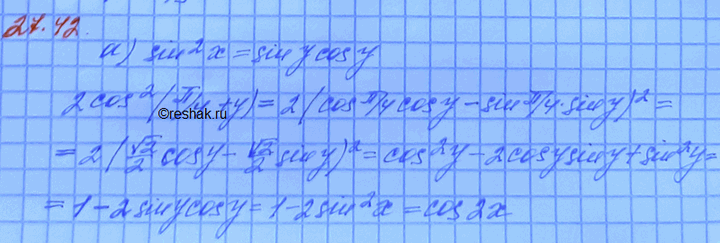 27.42.
а) sin²x = sin y cos y
2cos²(π/4 + y) = 2(cos π/4 cos y − sin π/4 · sin y)² =
©reshak.ru
= 2(√2/2 cos y − √2/2 sin y)² = cos²y − 2cos y sin y + sin²y =
= 1 − 2 sin y cos y = 1 − 2 sin²x = cos 2x